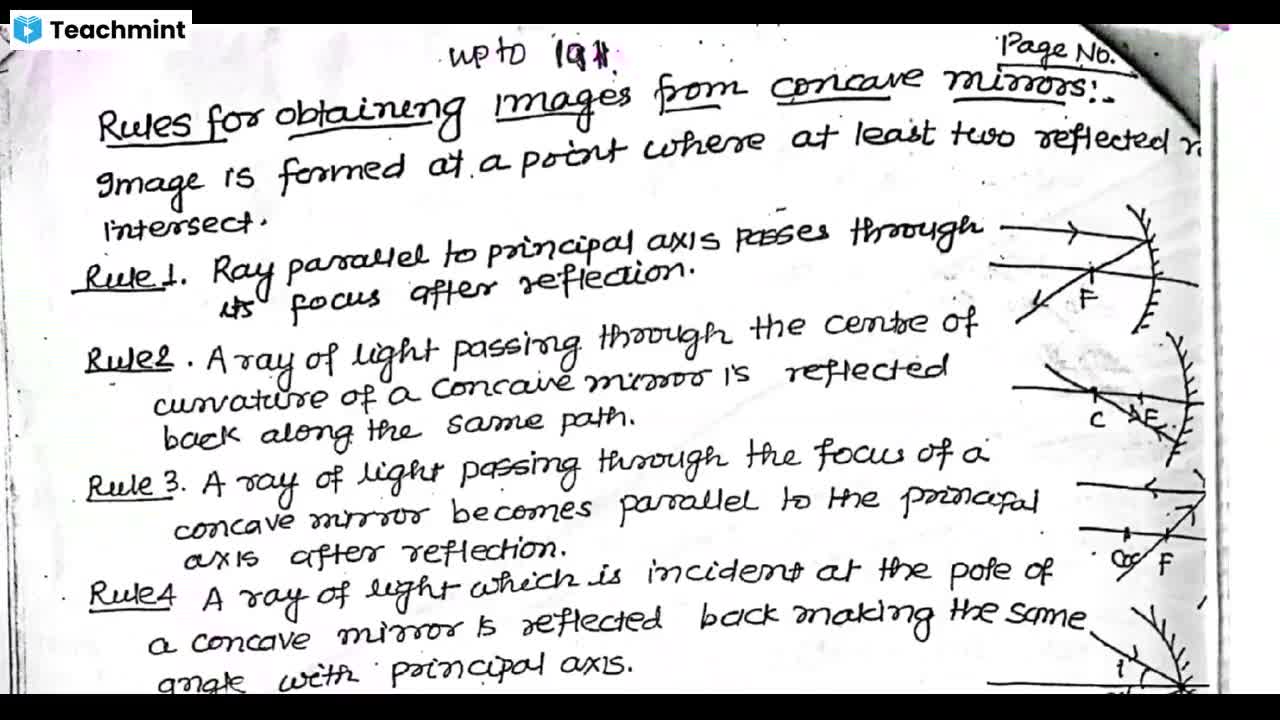 Teachmint
up to
Page No.
Rules for obtaineng images from concave mirrors:-
Image is formed at a point where at least two reflected
intersect.
Rule 1. Ray parallel to principal axis passes through
its focus after reflection.
F
Rule 2. A ray of light passing through the centre of
curvature of a concave mirror is reflected
back along the same path.
C F
Rule 3. A ray of light passing through the focus of a
concave mirror becomes parallel to the principal
axis after reflection.
F
Rule 4 A ray of light which is incident at the pole of
a concave mirror is reflected back making the same
angle with principal axis.
i